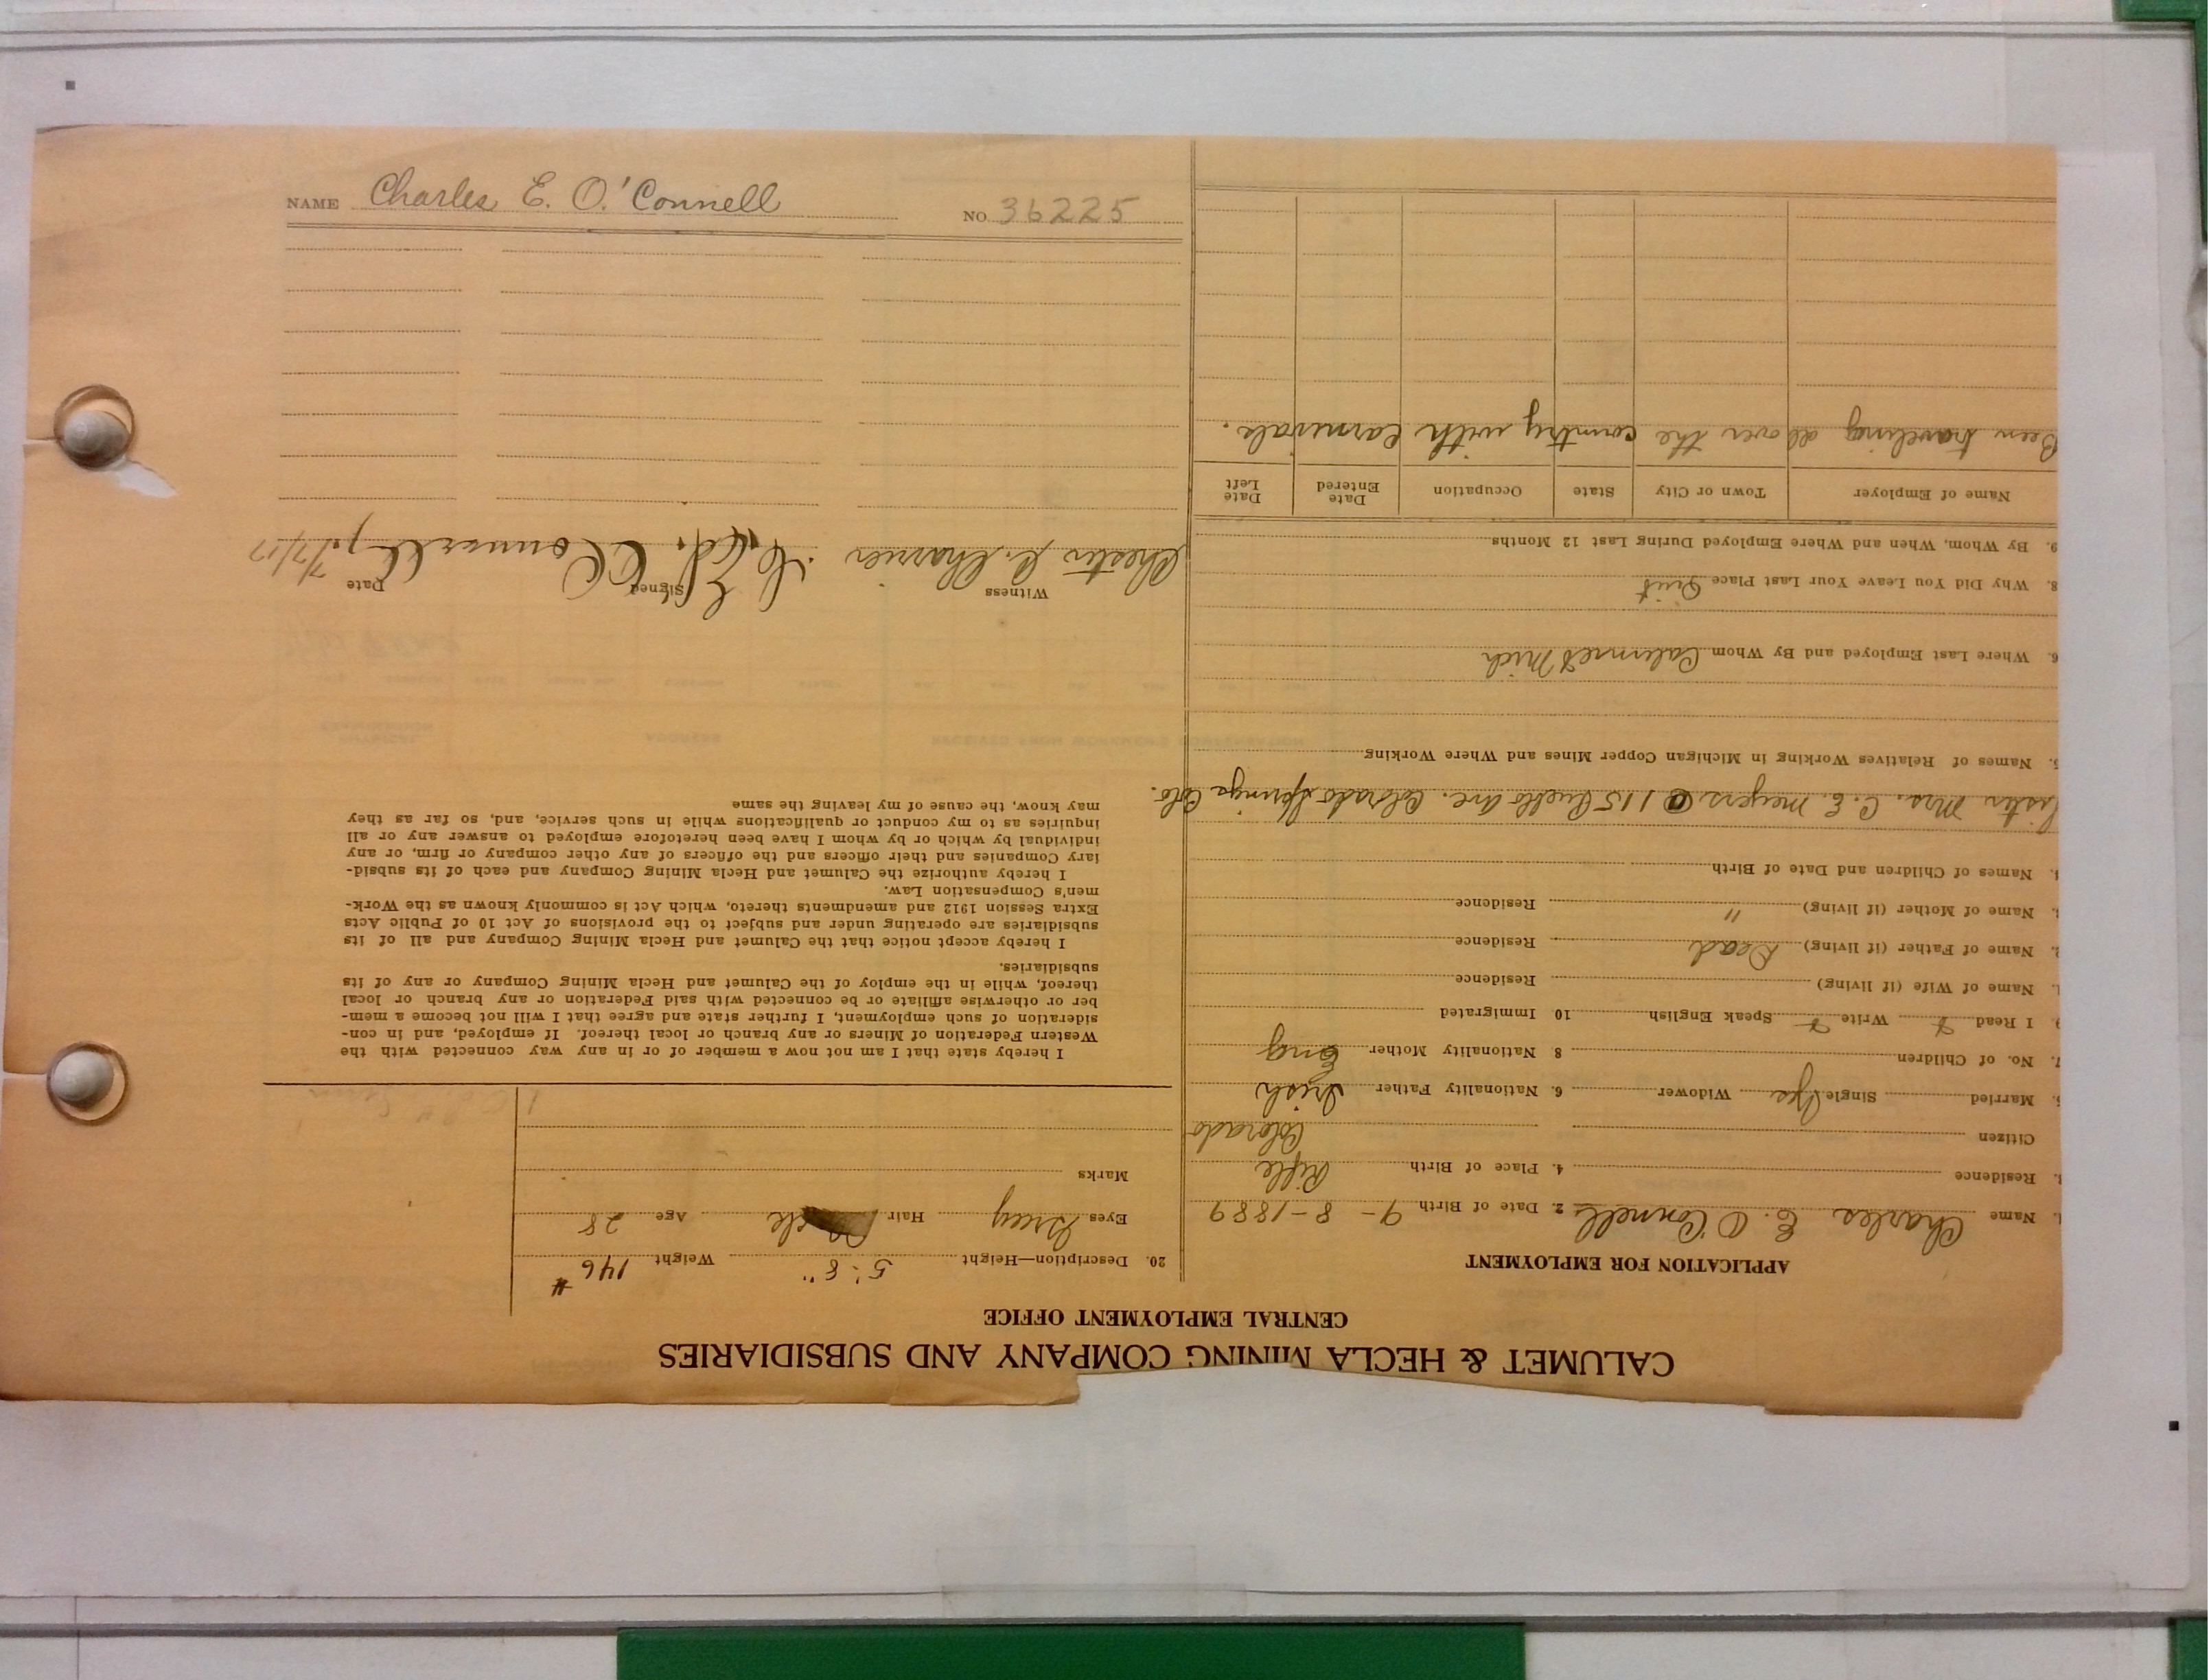 NAME Charles E. O'Connell NO. 36225
CALUMET & HECLA MINING COMPANY AND SUBSIDIARIES
CENTRAL EMPLOYMENT OFFICE
APPLICATION FOR EMPLOYMENT
Name Charles E. O'Connell 2. Date of Birth 9-8-1889
Residence 4. Place of Birth Rifle
Citizen Colorado
Married Single Yes Widower 6. Nationality Father Irish
7. No. of Children 8 Nationality Mother Eng
9. I Read Write Speak English 10 Immigrated
1. Name of Wife (if living) Residence
2. Name of Father (if living) Dead Residence
Name of Mother (if living) " Residence
Names of Children and Date of Birth
Sister Mrs. C. E. Meyers 115 Avc. Colorado Springs Colo.
5. Names of Relatives Working in Michigan Copper Mines and Where Working
6. Where Last Employed and By Whom Calumet Mich
8. Why Did You Leave Your Last Place Quit
9. By Whom, When and Where Employed During Last 12 Months
Name of Employer Town or City State Occupation Date Entered Date Left
Been traveling all over the country with Carnivals.
20. Description—Height 5' 8" Weight 146 #
Eyes Gray Hair Age 28
Marks
I hereby state that I am not now a member of or in any way connected with the
Western Federation of Miners or any branch or local thereof. If employed, and in con-
sideration of such employment, I further state and agree that I will not become a mem-
ber or otherwise affiliate or be connected with said Federation or any branch or local
thereof, while in the employ of the Calumet and Hecla Mining Company or any of its
subsidiaries.
I hereby accept notice that the Calumet and Hecla Mining Company and all of its
subsidiaries are operating under and subject to the provisions of Act 10 of Public Acts
Extra Session 1912 and amendments thereto, which Act is commonly known as the Work-
men's Compensation Law.
I hereby authorize the Calumet and Hecla Mining Company and each of its subsid-
iary Companies and their officers and the officers of any other company or firm, or any
individual by which or by whom I have been heretofore employed to answer any or all
inquiries as to my conduct or qualifications while in such service, and, so far as they
may know, the cause of my leaving the same
Witness Signed Date
Chester 7/7/17